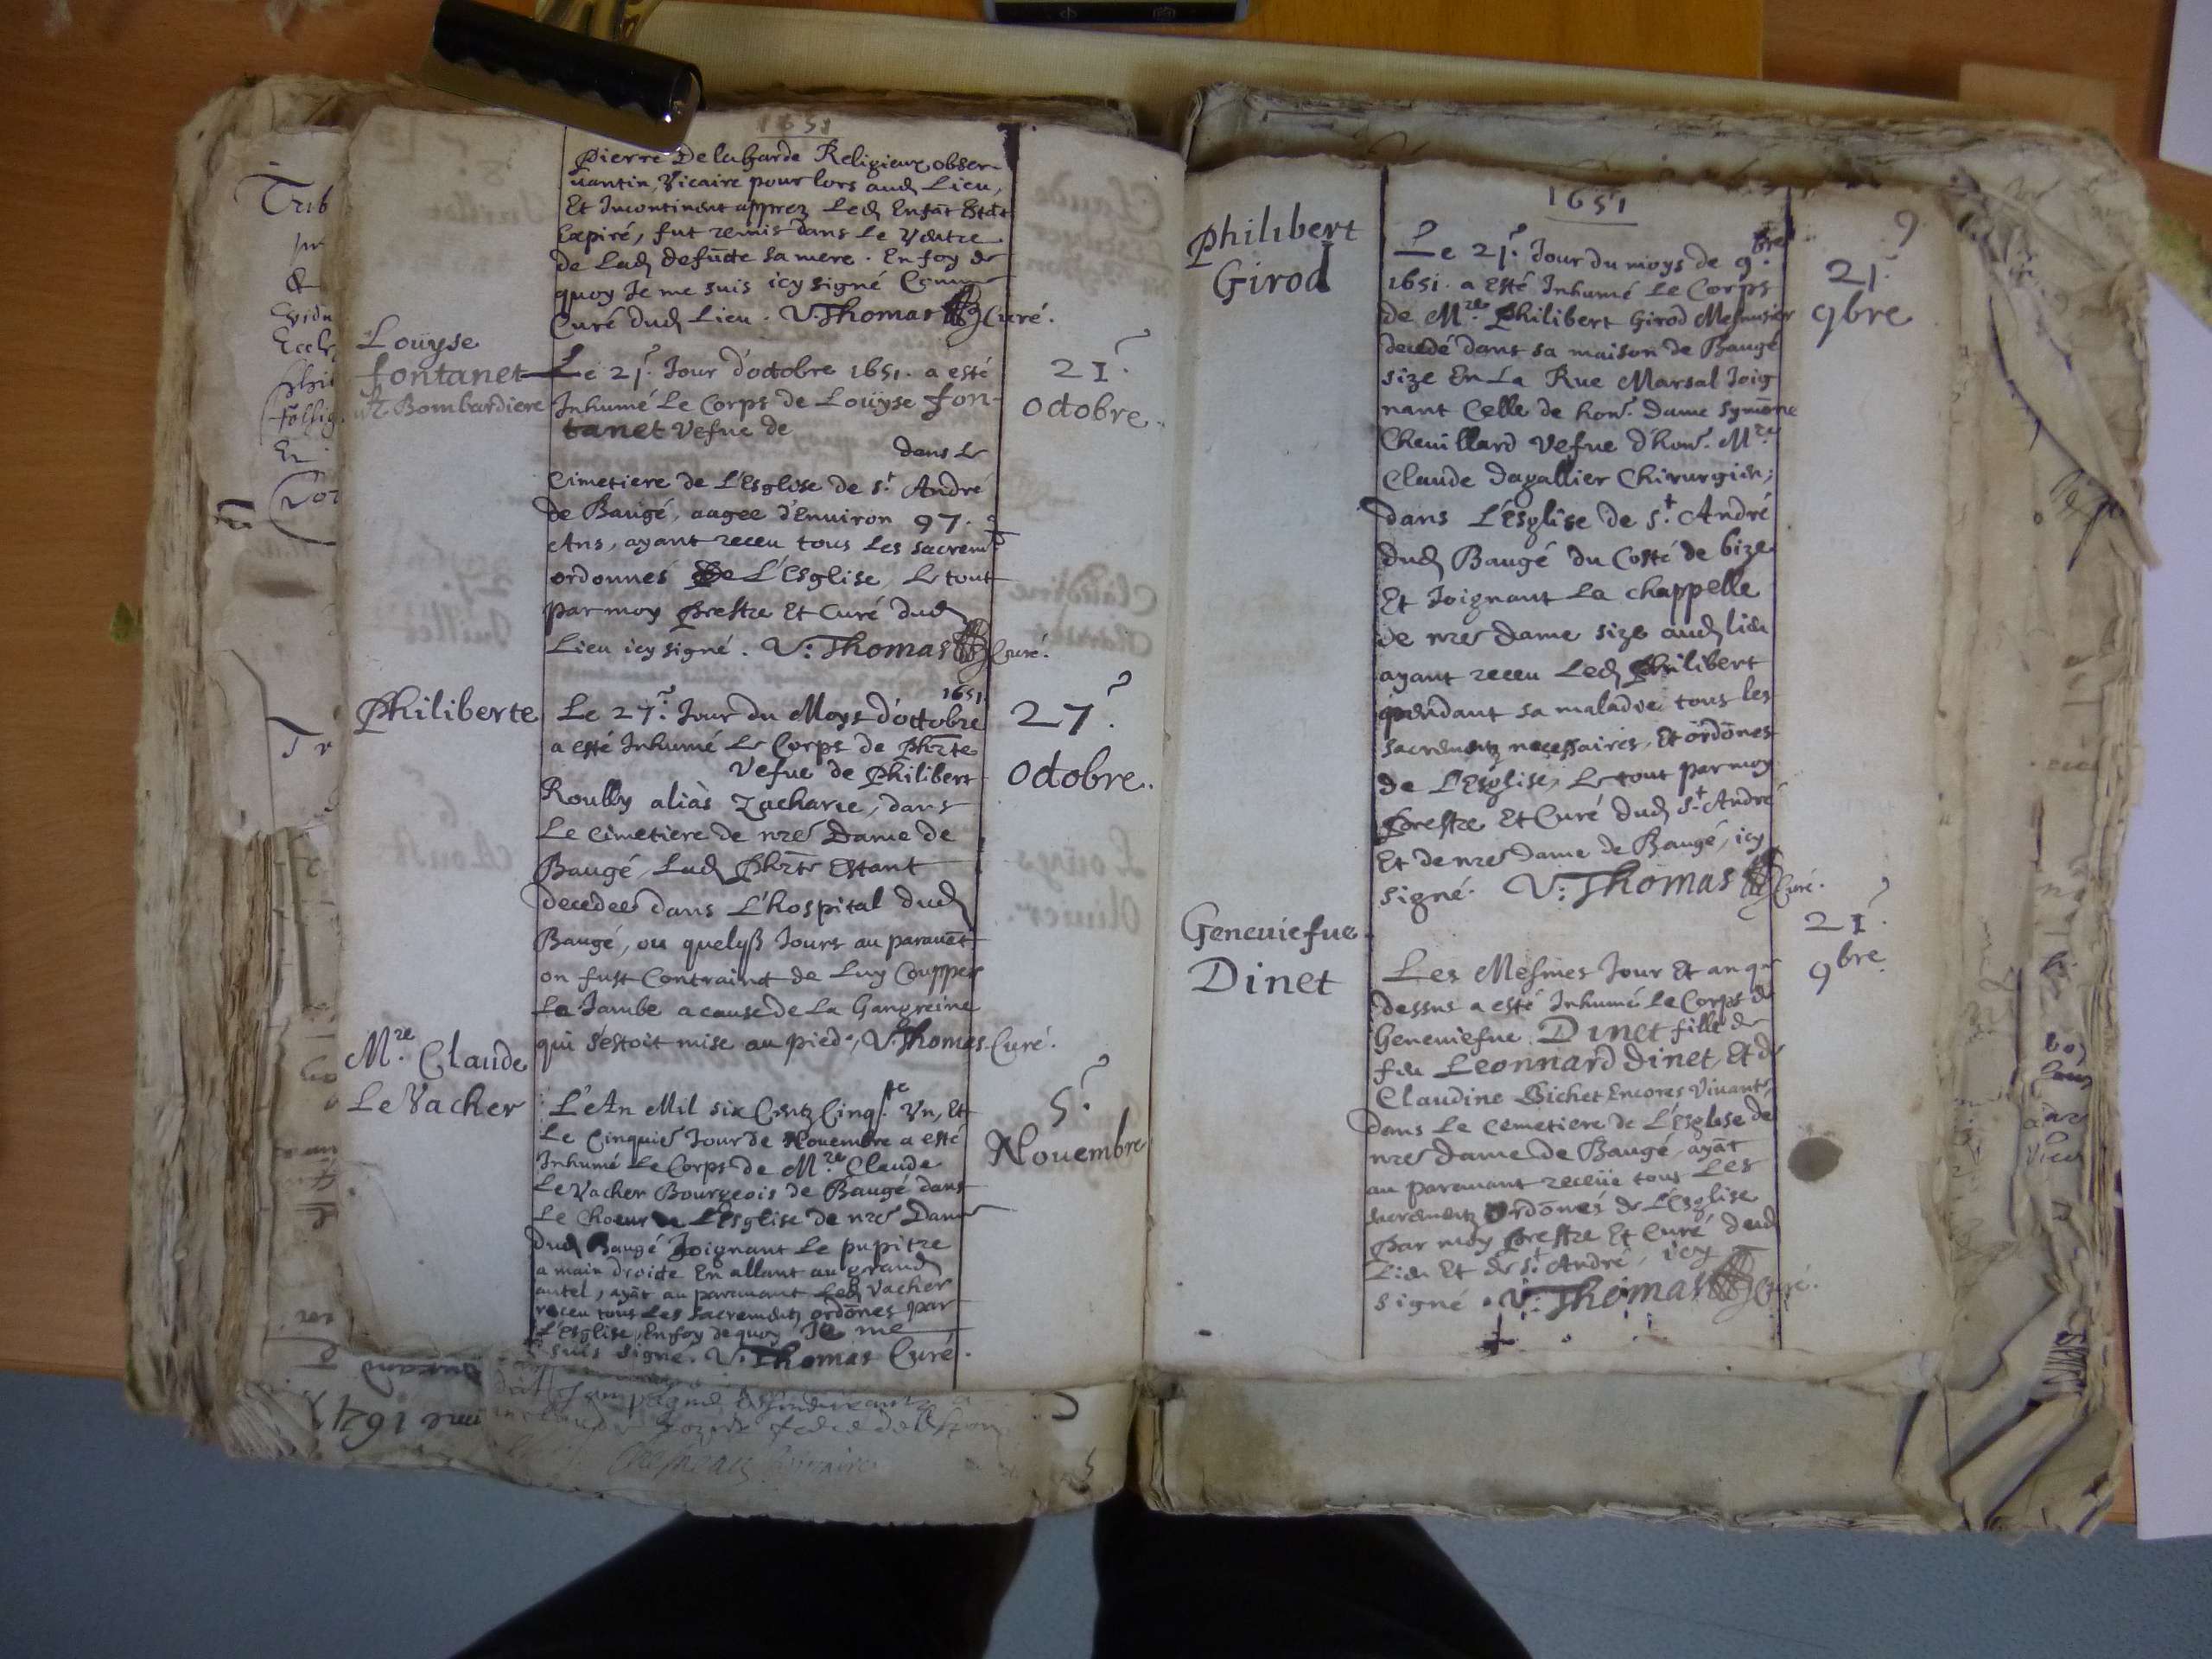 1651
Pierre Delagarde Religieux obser-
uantin, Vicaire pour lors aud Lieu,
Et Incontinent apprez Led Enfāt Estāt
Expiré, fut remis dans Le Ventre
de Lad defūcte sa mere. En foy de
quoy Je me suis icy signé Comme
Curé dud Lieu. V. Thomas Curé.
Louÿse
fontanet
Bombardiere
Le 21. Jour d'octobre 1651. a esté
Inhumé Le Corps de Louÿse fon-
tanet Vefue de
dans Le
Cimetiere de L'Esglise de St. André
de Baugé, aagee d'Enuiron 97.
Ans, ayant receu tous Les sacremt
ordonnés De L'Esglise, Le tout
par moy Prestre Et Curé dud
Lieu icy signé. V: Thomas Curé.
21.
octobre.
Philiberte
Le 27. Jour du Moys d'octobre 1651
a esté Inhumé Le Corps de Phrte
Vefue de Philibert
Roulby aliàs Zacharie, dans
Le cimetiere de nre Dame de
Baugé, Lad Phrte Estant
decedee dans L'hospital dud
Baugé, ou quelqs Jours au parauēt
on fust Contraint de Luy Coupper
La Jambe a cause de La Gangreine
qui s'estoit mise au pied, V. Thomas Curé.
27.
octobre.
Mre. Claude
Le Vacher
L'An Mil six Centz Cinqte. Vn, Et
Le Cinquie Jour de Nouembre a esté
Inhumé Le Corps de Mre. Claude
Le Vacher Bourgeois de Baugé dans
Le Choeur de L'Esglise de nre Dame
dud Baugé Joignant Le pupitre
a main droicte En allant au grand
autel, ayāt au parauant Led Vacher
receu tous Les sacrementz ordōnes par
L'Esglise, En foy de quoy Je me
suis signé. V. Thomas Curé.
5.
Nouembre
1651
9
Philibert
Girod
Le 21. Jour du moys de 9.bre
1651. a esté Inhumé Le Corps
de Mre Philibert Girod Menusier
decedé dans sa maison de Baugé
size En La Rue Marsal Joig
nant Celle de hon. Dame Symōne
Cheuillard Vefue d'hon. Mre
Claude Dagallier Chirurgien;
dans L'Esglise de St. André
dud Baugé du Costé de bize
Et Joignant La chappelle
de nre dame size aud lieu
ayant receu Led Philibert
pendant sa maladie tous les
sacrementz necessaires, Et ordōnes
de L'Esglise, Le tout par moy
Prestre Et Curé dud St. André
Et de nre Dame de Baugé, icy
signé. V: Thomas Curé.
21.
9bre
Geneuiefue
Dinet
Les Mesmes Jour Et an que
dessus a esté Inhumé Le Corps de
Geneuiefue Dinet fille de
feu Leonnard Dinet, Et de
Claudine Bichet Encores Viuante,
dans Le Cemetiere de L'Esglise de
nre dame de Baugé, ayāt
au parauant receüe tous Les
sacrementz ordōnés de L'Esglise
Par moy Prestre Et Curé dud
Lieu Et de St. André, icy
signé. V: Thomas Curé.
21.
9bre